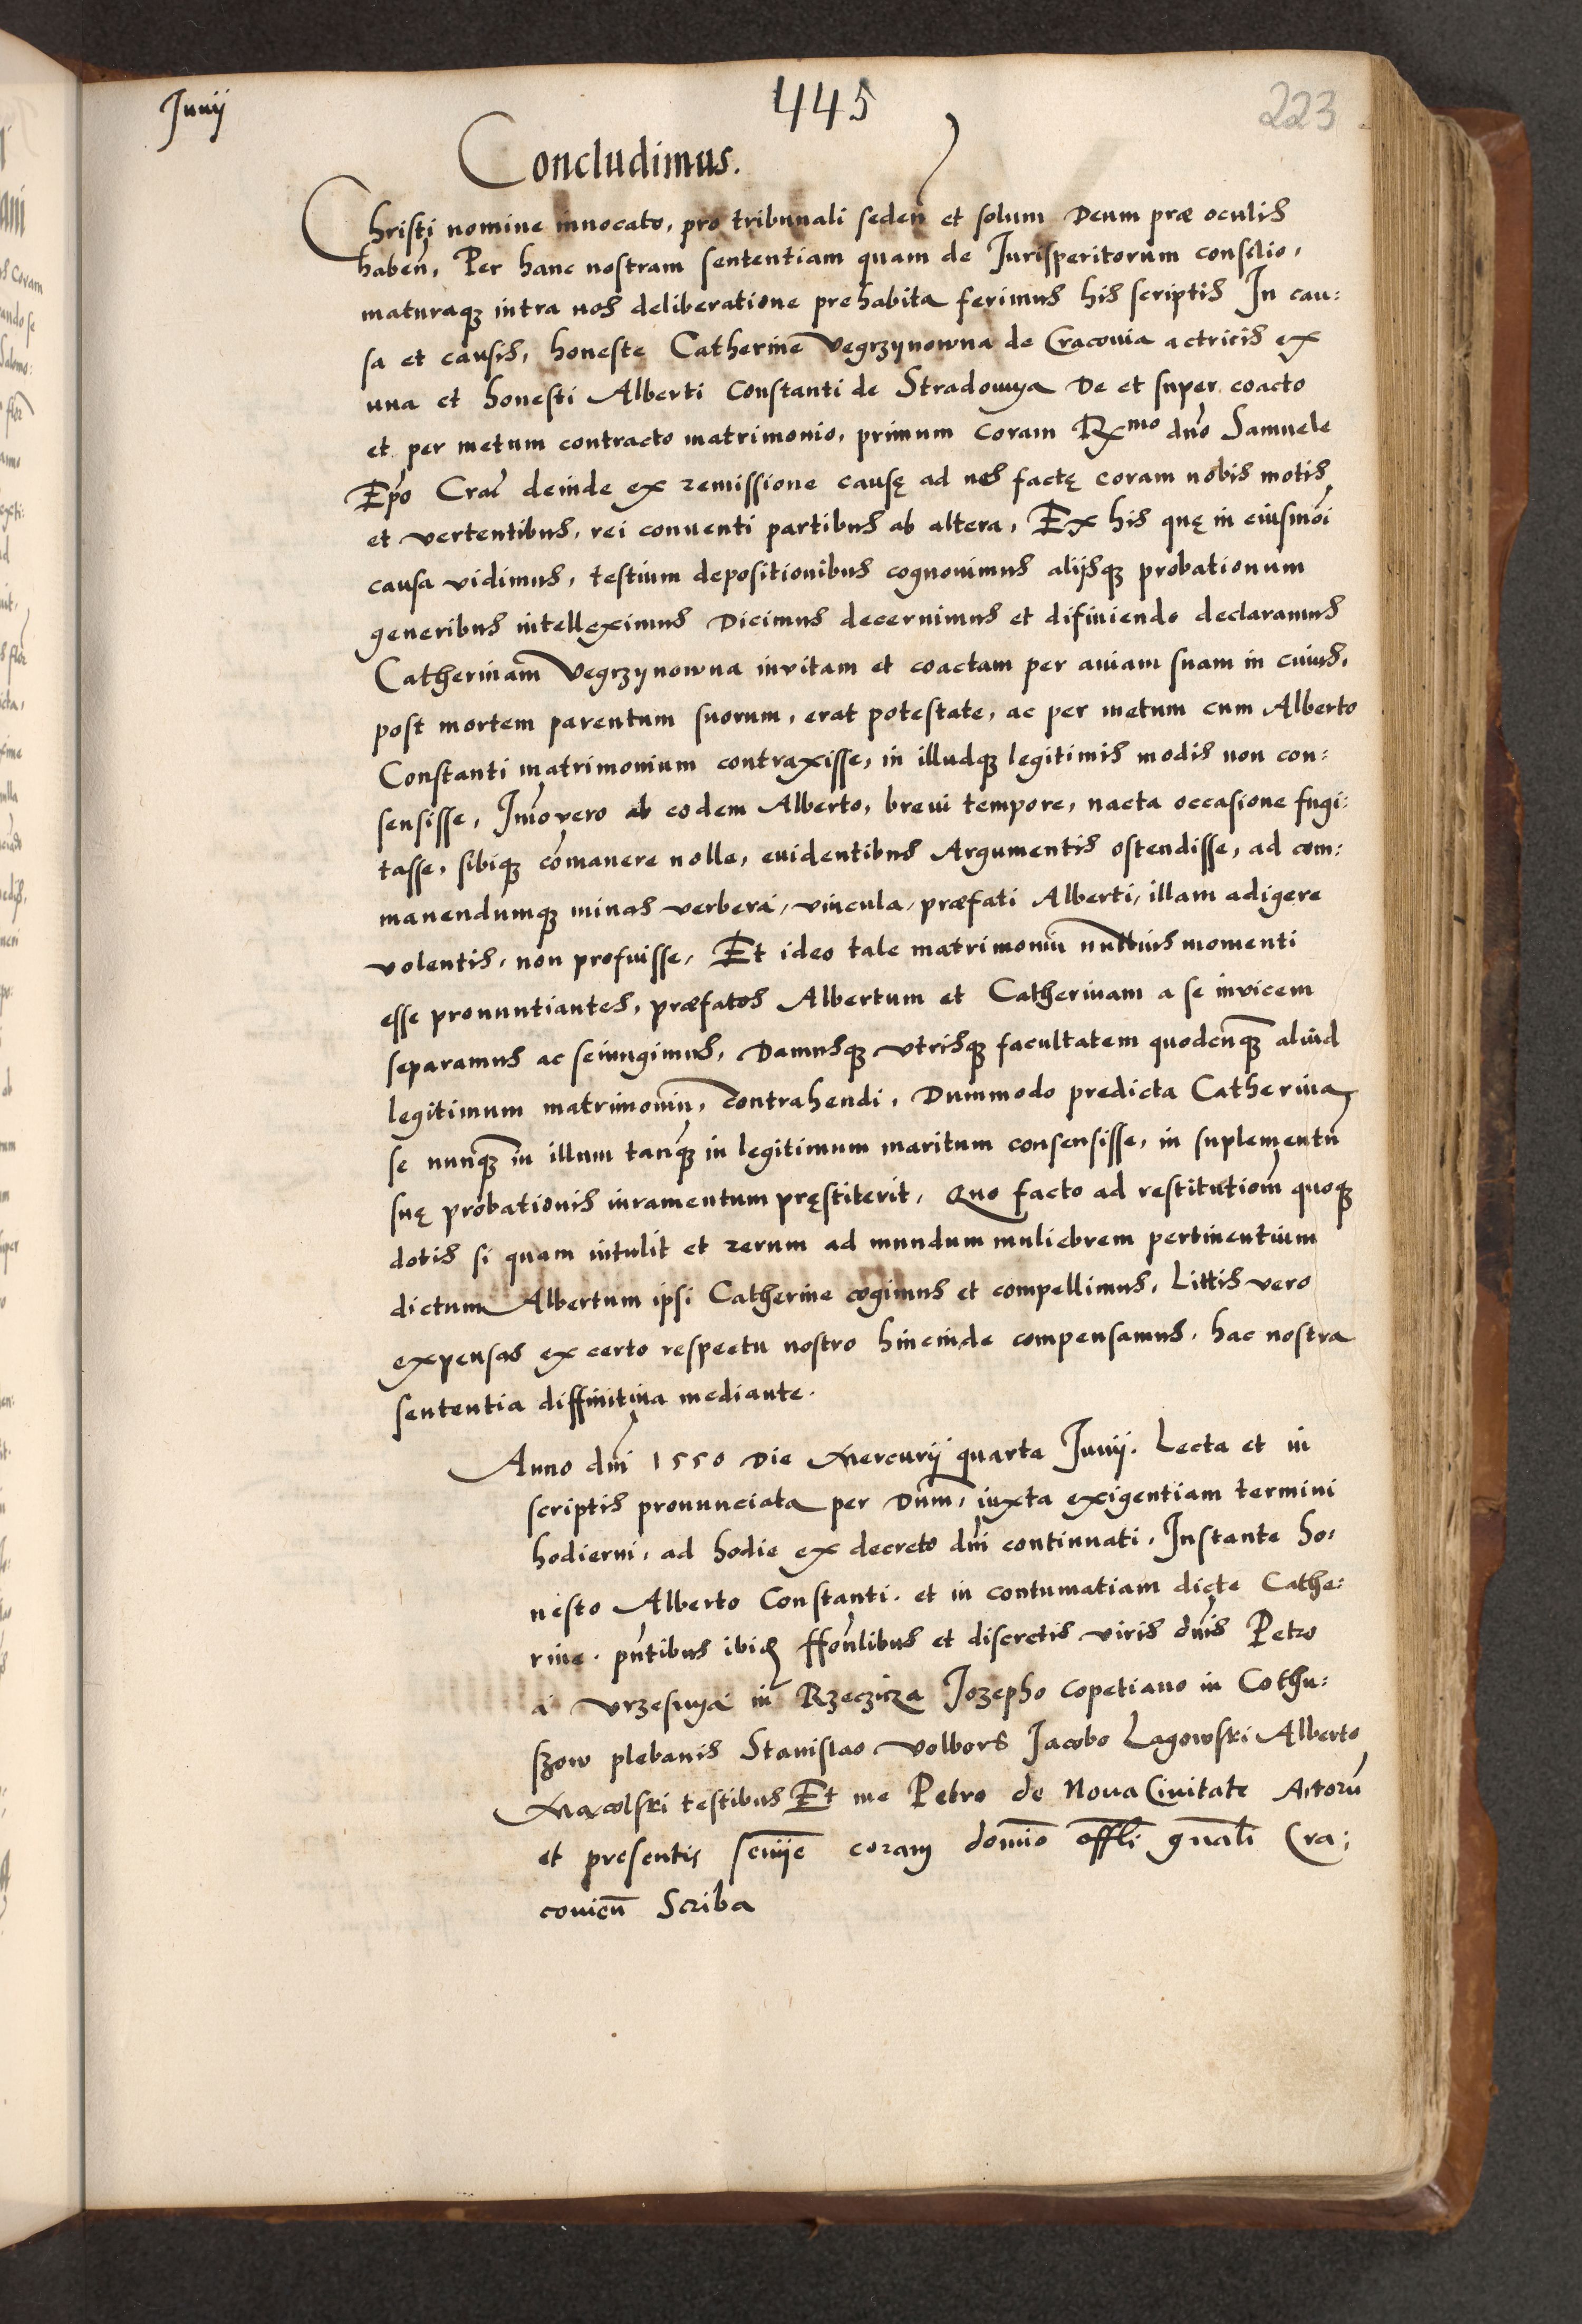 Junij
445
223
Concludimus.
Christi nomine innocato, pro tribunali seden̄ et solum Deum præ oculis
haben̄, Per hanc nostram sententiam quam de Jurisperitorum consilio,
maturaqȝ intra nos deliberatione prehabita ferimus his scriptis In cau:
sa et causis, honeste Catherine Vegrzynowna de Cracouia actricis ex
una et honesti Alberti Constanti de Stradomya De et super coacto
et per metum contracto matrimonio, primum Coram Rx^mo dño Samuele
Epo Crac̄ deinde ex remissione causę ad nos factę coram nobis motis
et vertentibus, rei conuenti partibus ab altera, Ex his quę in eiusmōi
causa vidimus, testium depositionibus cognouimus alijsqȝ probationum
generibus intelleximus Dicimus decernimus et difiniendo declaramus
Catherinam Vegrzynowna inuitam et coactam per auiam suam in cuius,
post mortem parentum suorum, erat potestate, ac per metum cum Alberto
Constanti matrimonium contraxisse, in illudqȝ legitimis modis non con:
sensisse, Imo vero ab eodem Alberto, breui tempore, nacta occasione fugi:
tasse, sibiqȝ cōmanere nolle, euidentibus Argumentis ostendisse, ad com:
manendumqȝ minas verbera, vincula, præfati Alberti, illam adigere
volentis, non profuisse, Et ideo tale matrimoniū nullius momenti
esse pronuntiantes, præfatos Albertum et Catherinam a se inuicem
separamus ac seiungimus, Damusqȝ vtrisqȝ facultatem quodcunqȝ aliud
legitimum matrimoniū, contrahendi, Dummodo predicta Catherina
se nunqȝ in illum tanqȝ in legitimum maritum consensisse, in suplementū
suę probationis iuramentum pręstiterit, Quo facto ad restitutiom̄ quoqȝ
dotis si quam intulit et rerum ad mundum muliebrem pertinentium
dictum Albertum ipsi Catherine cogimus et compellimus, Littis vero
expensas ex certo respectu nostro hincinde compensamus, hac nostra
sententia diffinitiua mediante.
Anno dñi 1550 Die Mercurij quarta Junij. Lecta et in
scriptis pronunciata per Dnm̄, iuxta exigentiam termini
hodierni, ad hodie ex decreto dñi continuati, Instante ho:
nesto Alberto Constanti. et in contumatiam dicte Cathe:
rine. pn̄tibus ibid ffon̄libus et discretis viris dñis Petro
a Vrzesnya in Rzeczicza Jozepho Copetiano in Cothu:
szow plebanis Stanislao Volbors Jacobo Lagowski Alberto
testibus Et me Petro de Noua Ciuitate Actorū
et presentis coram domīo offlī gn̄ali Cra:
couien̄ Scriba